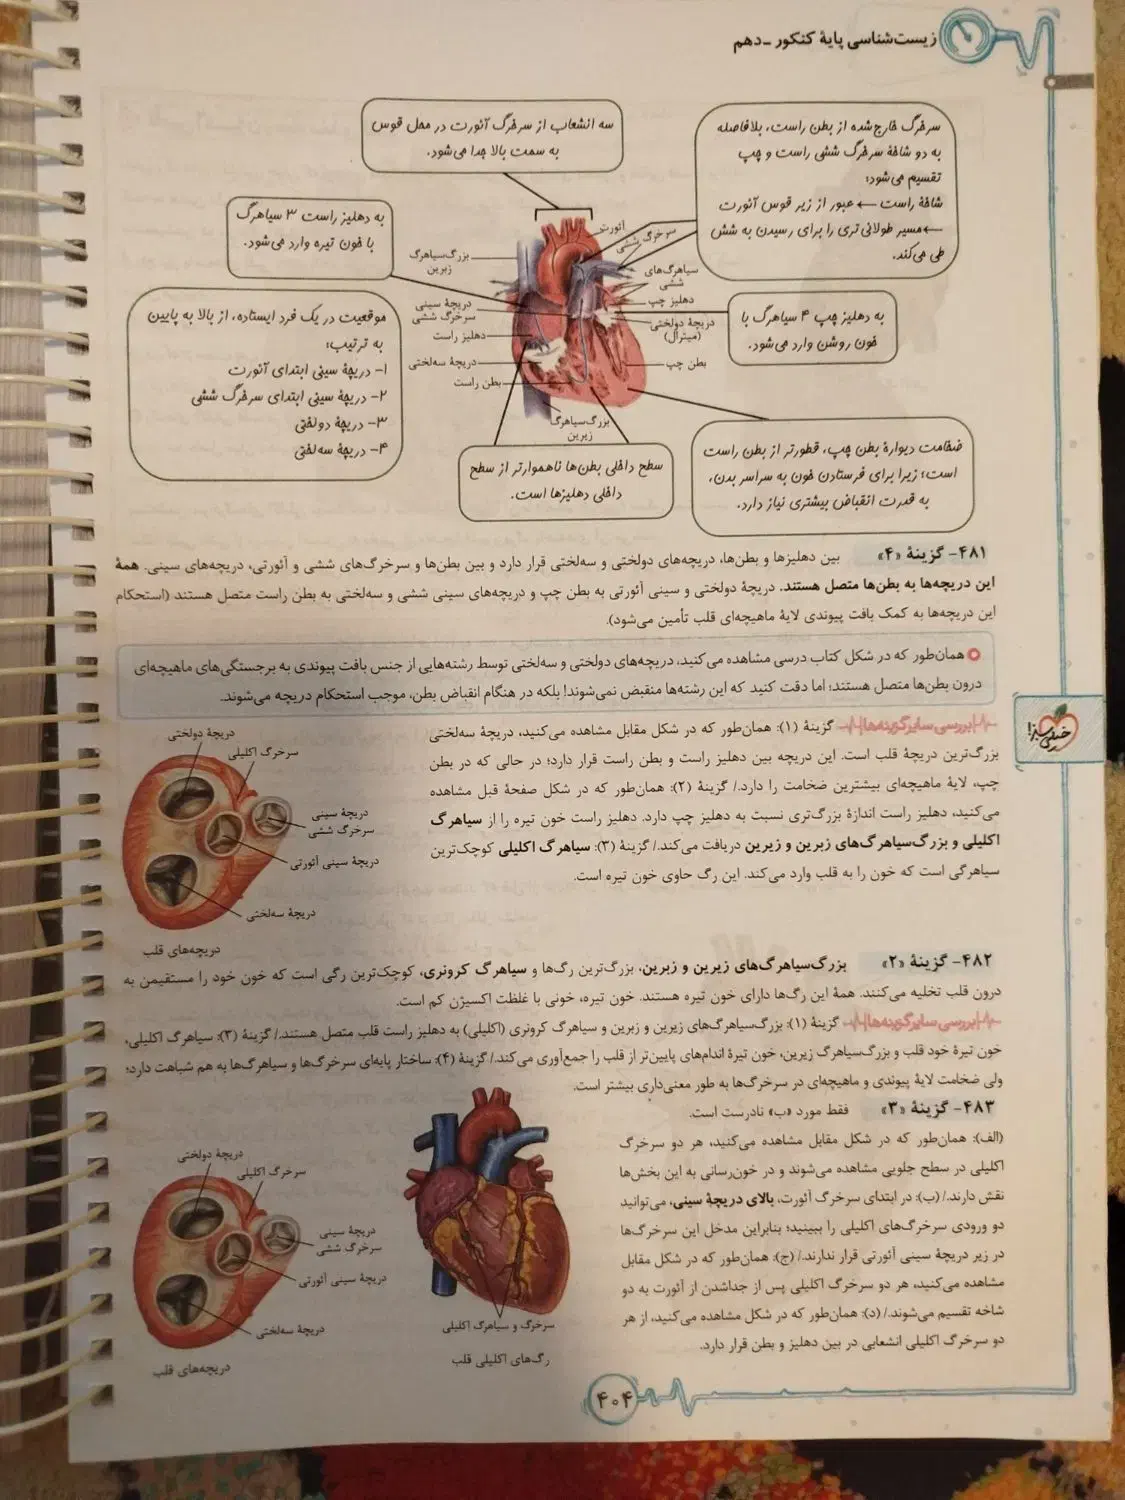 زیست‌شناسی پایهٔ کنکور -دهم
سرخرگ خارج‌شده از بطن راست، بلافاصله
به دو شاخهٔ سرخرگ ششی راست و چپ
تقسیم می‌شود:
شاخهٔ راست ← عبور از زیر قوس آئورت
←مسیر طولانی تری را برای رسیدن به شش
طی می‌کند.
سه انشعاب از سرخرگ آئورت در محل قوس
به سمت بالا جدا می‌شود.
به دهلیز راست ۳ سیاهرگ
با خون تیره وارد می‌شود.
موقعیت در یک فرد ایستاده، از بالا به پایین
به ترتیب:
۱- دریچهٔ سینی ابتدای آئورت
۲- دریچهٔ سینی ابتدای سرخرگ ششی
۳- دریچهٔ دولختی
۴- دریچهٔ سه‌لختی
آئورت
سرخرگ ششی
سیاهرگ‌های
ششی
دهلیز چپ
دریچهٔ دولختی
(میترال)
بطن چپ
بزرگ‌سیاهرگ
زبرین
دریچهٔ سینی
سرخرگ ششی
دهلیز راست
دریچهٔ سه‌لختی
بطن راست
بزرگ‌سیاهرگ
زیرین
به دهلیز چپ ۴ سیاهرگ با
خون روشن وارد می‌شود.
ضخامت دیوارهٔ بطن چپ، قطورتر از بطن راست
است؛ زیرا برای فرستادن خون به سراسر بدن،
به قدرت انقباض بیشتری نیاز دارد.
سطح داخلی بطن‌ها ناهموارتر از سطح
داخلی دهلیزها است.
۴۸۱- گزینهٔ «۴» بین دهلیزها و بطن‌ها، دریچه‌های دولختی و سه‌لختی قرار دارد و بین بطن‌ها و سرخرگ‌های ششی و آئورتی، دریچه‌های سینی. همهٔ
این دریچه‌ها به بطن‌ها متصل هستند. دریچهٔ دولختی و سینی آئورتی به بطن چپ و دریچه‌های سینی ششی و سه‌لختی به بطن راست متصل هستند (استحکام
این دریچه‌ها به کمک بافت پیوندی لایهٔ ماهیچه‌ای قلب تأمین می‌شود).
همان‌طور که در شکل کتاب درسی مشاهده می‌کنید، دریچه‌های دولختی و سه‌لختی توسط رشته‌هایی از جنس بافت پیوندی به برجستگی‌های ماهیچه‌ای
درون بطن‌ها متصل هستند؛ اما دقت کنید که این رشته‌ها منقبض نمی‌شوند! بلکه در هنگام انقباض بطن، موجب استحکام دریچه می‌شوند.
بررسی سایر گزینه‌ها گزینهٔ (۱): همان‌طور که در شکل مقابل مشاهده می‌کنید، دریچهٔ سه‌لختی
بزرگ‌ترین دریچهٔ قلب است. این دریچه بین دهلیز راست و بطن راست قرار دارد؛ در حالی که در بطن
چپ، لایهٔ ماهیچه‌ای بیشترین ضخامت را دارد./ گزینهٔ (۲): همان‌طور که در شکل صفحهٔ قبل مشاهده
می‌کنید، دهلیز راست اندازهٔ بزرگ‌تری نسبت به دهلیز چپ دارد. دهلیز راست خون تیره را از سیاهرگ
اکلیلی و بزرگ‌سیاهرگ‌های زبرین و زیرین دریافت می‌کند./ گزینهٔ (۳): سیاهرگ اکلیلی کوچک‌ترین
سیاهرگی است که خون را به قلب وارد می‌کند. این رگ حاوی خون تیره است.
دریچهٔ دولختی
سرخرگ اکلیلی
دریچهٔ سینی
سرخرگ ششی
دریچهٔ سینی آئورتی
دریچهٔ سه‌لختی
دریچه‌های قلب
خیلی سبز
۴۸۲- گزینهٔ «۲» بزرگ‌سیاهرگ‌های زیرین و زبرین، بزرگ‌ترین رگ‌ها و سیاهرگ کرونری، کوچک‌ترین رگی است که خون خود را مستقیمن به
درون قلب تخلیه می‌کنند. همهٔ این رگ‌ها دارای خون تیره هستند. خون تیره، خونی با غلظت اکسیژن کم است.
بررسی سایر گزینه‌ها گزینهٔ (۱): بزرگ‌سیاهرگ‌های زیرین و زبرین و سیاهرگ کرونری (اکلیلی) به دهلیز راست قلب متصل هستند./ گزینهٔ (۳): سیاهرگ اکلیلی،
خون تیرهٔ خود قلب و بزرگ‌سیاهرگ زیرین، خون تیرهٔ اندام‌های پایین‌تر از قلب را جمع‌آوری می‌کند./ گزینهٔ (۴): ساختار پایه‌ای سرخرگ‌ها و سیاهرگ‌ها به هم شباهت دارد؛
ولی ضخامت لایهٔ پیوندی و ماهیچه‌ای در سرخرگ‌ها به طور معنی‌داری بیشتر است.
۴۸۳- گزینهٔ «۳» فقط مورد «ب» نادرست است.
(الف): همان‌طور که در شکل مقابل مشاهده می‌کنید، هر دو سرخرگ
اکلیلی در سطح جلویی مشاهده می‌شوند و در خون‌رسانی به این بخش‌ها
نقش دارند./ (ب): در ابتدای سرخرگ آئورت، بالای دریچهٔ سینی، می‌توانید
دو ورودی سرخرگ‌های اکلیلی را ببینید؛ بنابراین مدخل این سرخرگ‌ها
در زیر دریچهٔ سینی آئورتی قرار ندارند./ (ج): همان‌طور که در شکل مقابل
مشاهده می‌کنید، هر دو سرخرگ اکلیلی پس از جداشدن از آئورت به دو
شاخه تقسیم می‌شوند./ (د): همان‌طور که در شکل مشاهده می‌کنید، از هر
دو سرخرگ اکلیلی انشعابی در بین دهلیز و بطن قرار دارد.
سرخرگ و سیاهرگ اکلیلی
رگ‌های اکلیلی قلب
دریچهٔ دولختی
سرخرگ اکلیلی
دریچهٔ سینی
سرخرگ ششی
دریچهٔ سینی آئورتی
دریچهٔ سه‌لختی
دریچه‌های قلب
۴۰۴